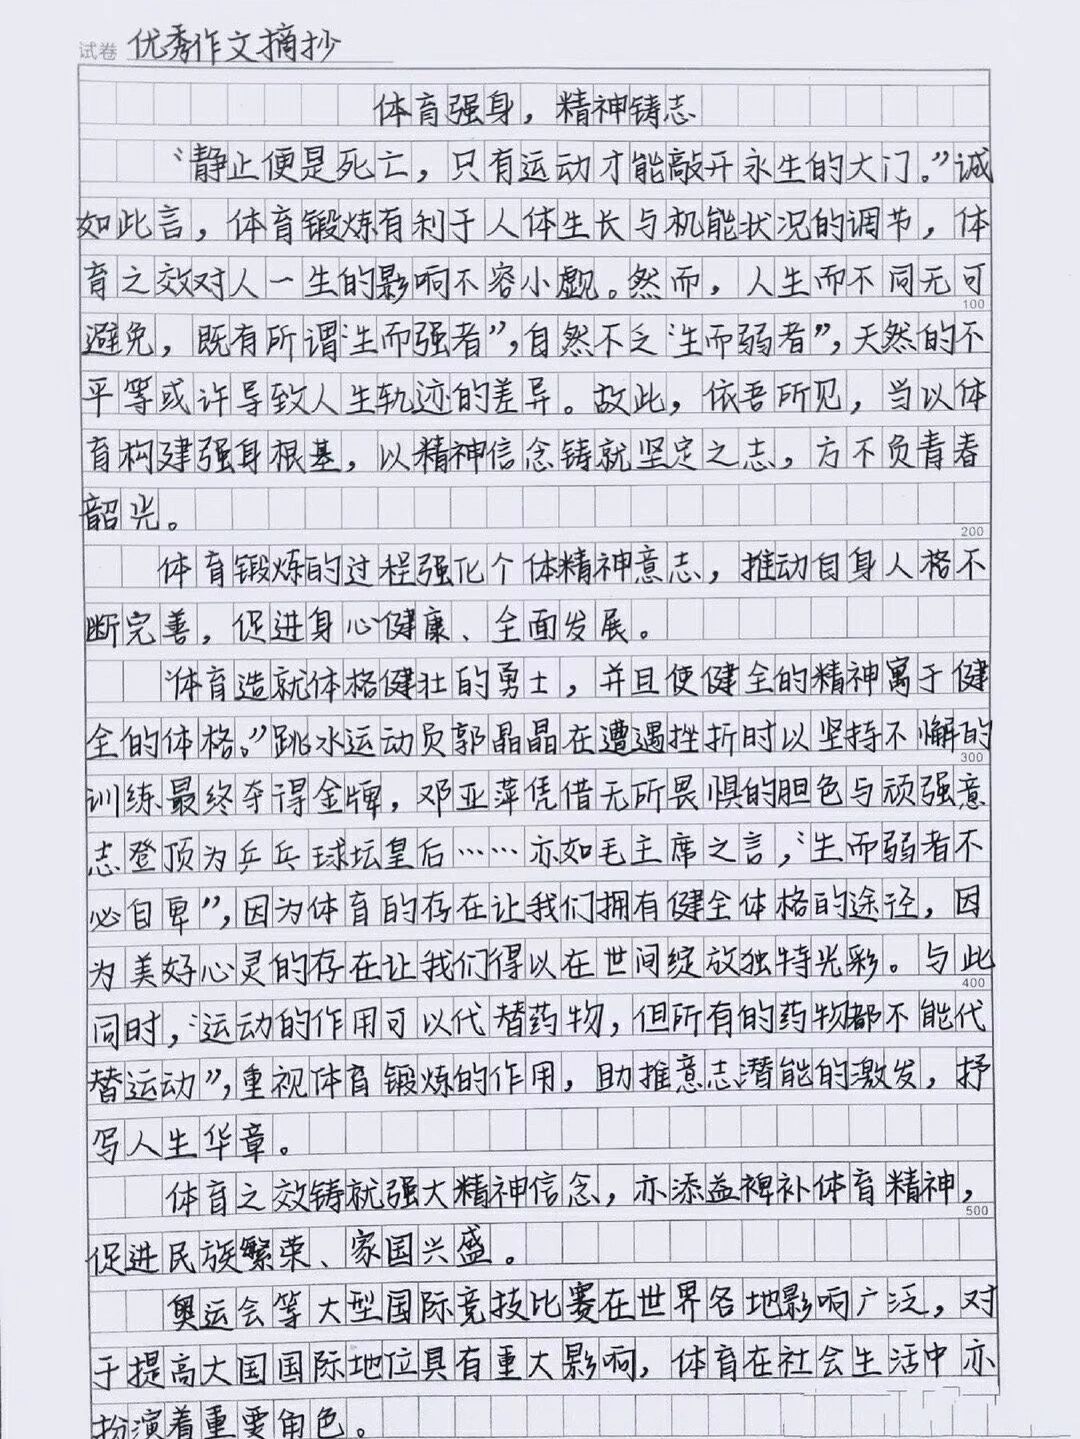 试卷 优秀作文摘抄
体育强身，精神铸志
“静止便是死亡，只有运动才能敲开永生的大门。”诚
如此言，体育锻炼有利于人体生长与机能状况的调节，体
育之效对人一生的影响不容小觑。然而，人生而不同无可
100
避免，既有所谓“生而强者”，自然不乏“生而弱者”，天然的不
平等或许导致人生轨迹的差异。故此，依吾所见，当以体
育构建强身根基，以精神信念铸就坚定之志，方不负青春
韶光。
200
体育锻炼的过程强化个体精神意志，推动自身人格不
断完善，促进身心健康、全面发展。
“体育造就体格健壮的勇士，并且使健全的精神寓于健
全的体格。”跳水运动员郭晶晶在遭遇挫折时以坚持不懈的
300
训练最终夺得金牌，邓亚萍凭借无所畏惧的胆色与顽强意
志登顶为乒乓球坛皇后……亦如毛主席之言，“生而弱者不
必自卑”，因为体育的存在让我们拥有健全体格的途径，因
为美好心灵的存在让我们得以在世间绽放独特光彩。与此
400
同时，“运动的作用可以代替药物，但所有的药物都不能代
替运动”，重视体育锻炼的作用，助推意志潜能的激发，抒
写人生华章。
体育之效铸就强大精神信念，亦添益裨补体育精神，
500
促进民族繁荣、家国兴盛。
奥运会等大型国际竞技比赛在世界各地影响广泛，对
于提高大国国际地位具有重大影响，体育在社会生活中亦
扮演着重要角色。